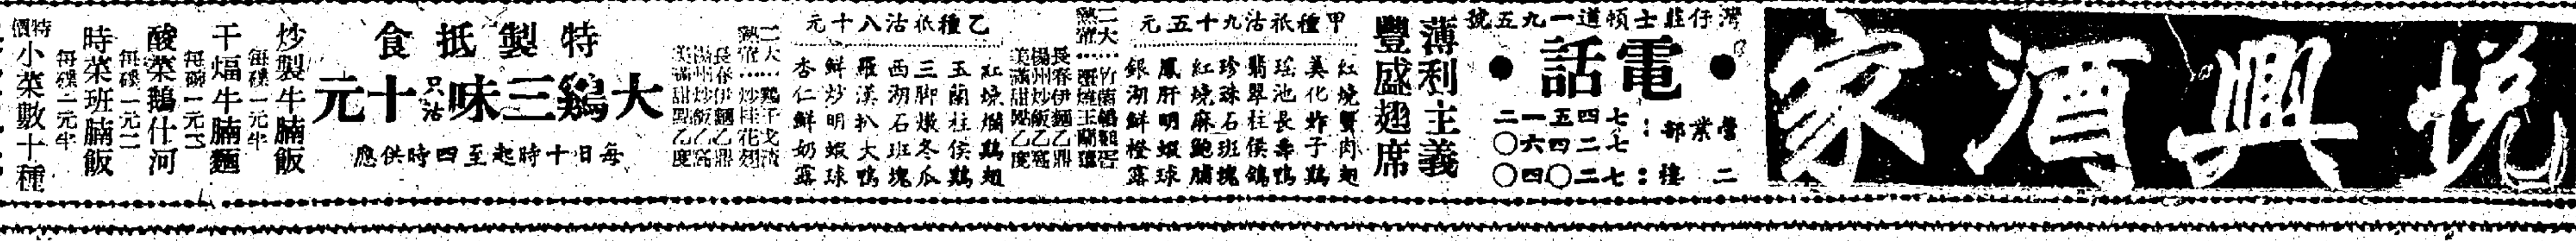 悅興酒家
灣仔莊士頓道一九五號
電話
營業部：七七四五一二〇
二樓：七二二〇四四〇
薄利主義
豐盛翅席
甲種祇沽九十五元
紅燒蟹肉翅
美化炸子鷄
瑤池長壽鴨
翡翠柱侯鴿
珍珠石班塊
紅燒麻鮑脯
鳳肝明蝦球
銀湖鮮橙露
二大熱葷
長春伊麵乙鼎
揚州炒飯乙窩
美滿甜點乙度
乙種祇沽八十元
紅燒爛鷄翅
玉蘭柱侯鷄
三脚燉冬瓜
西湖石班塊
羅漢扒大鴨
鮮炒明蝦球
杏仁鮮奶露
二大熱葷……炒桂花翅
長春伊麵乙鼎
揚州炒飯乙窩
美滿甜點乙度
特製抵食
大鷄三味只沽十元
每日十時起至四時供應
炒製牛腩飯
每碟一元半
干煏牛腩麵
每碗一元
酸菜鵝什河
每碟一元二
時菜班腩飯
每碟二元半
特價小菜數十種